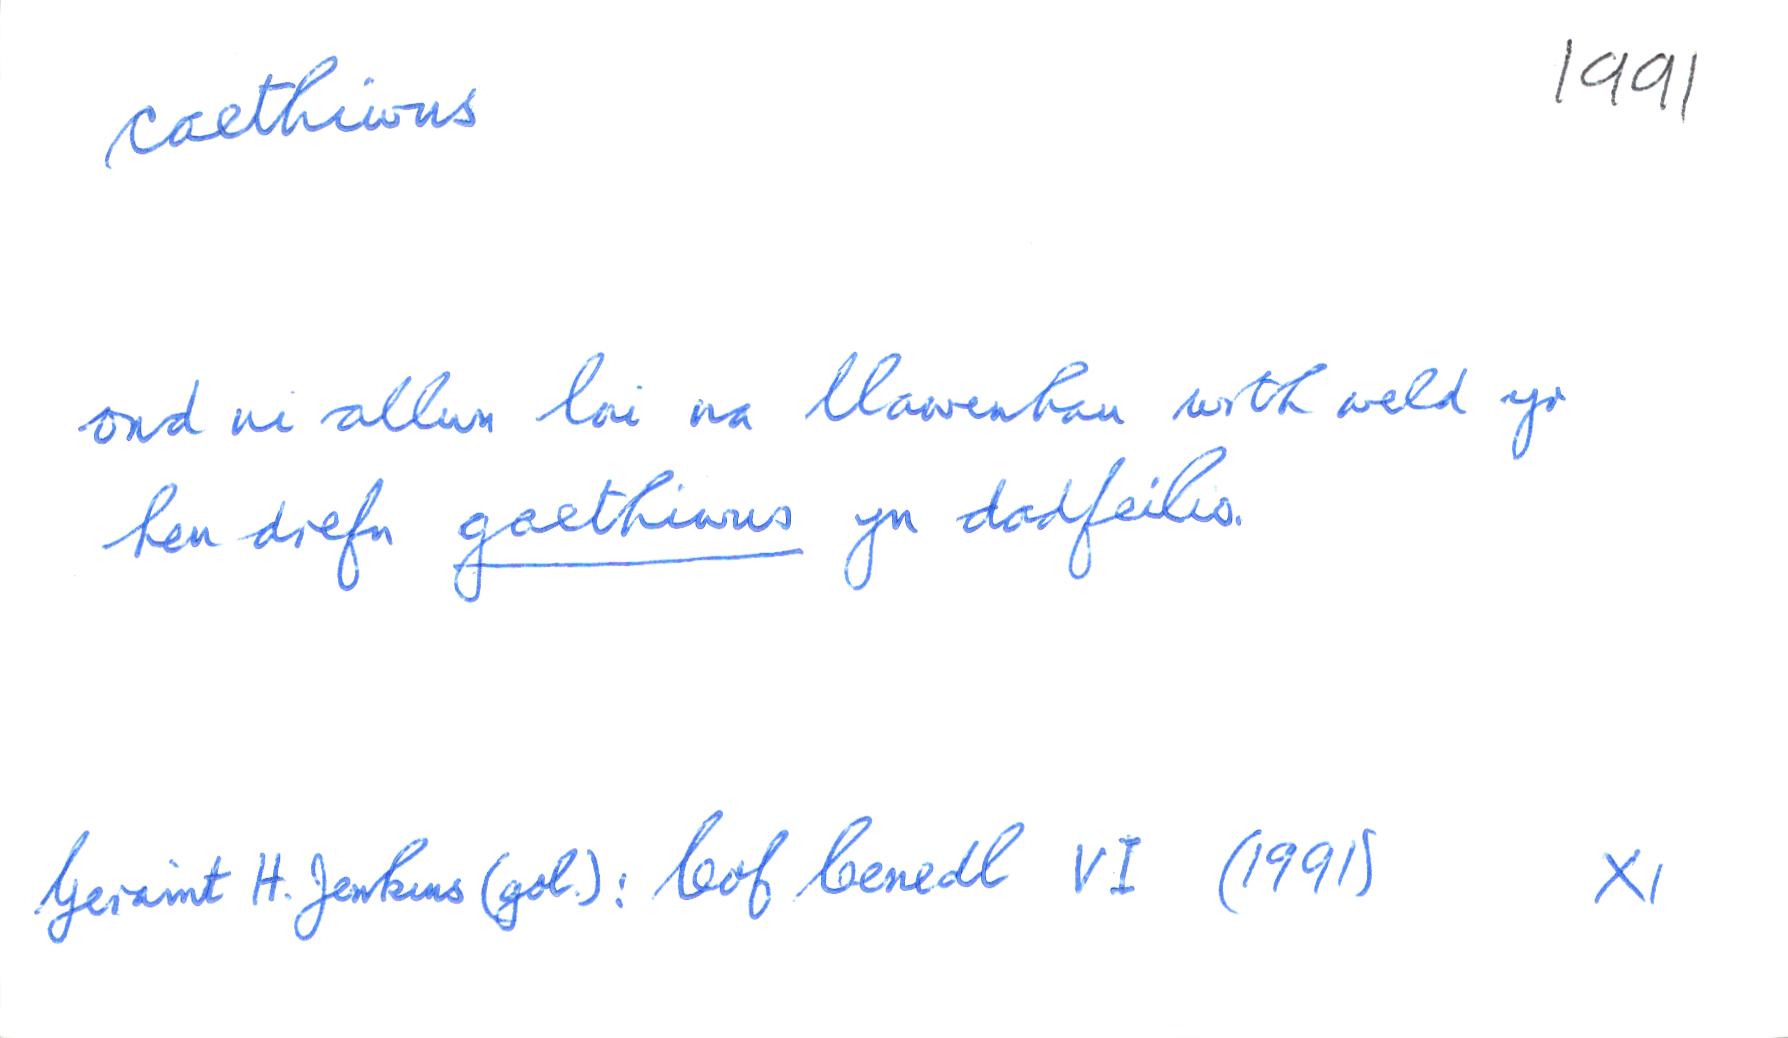 caethiwus 1991
ond ni allwn lai na llawenhau wrth weld yr
hen drefn gaethiwus yn dadfeilio.
Geraint H. Jenkins (gol.): Cof Cenedl VI (1991) XI